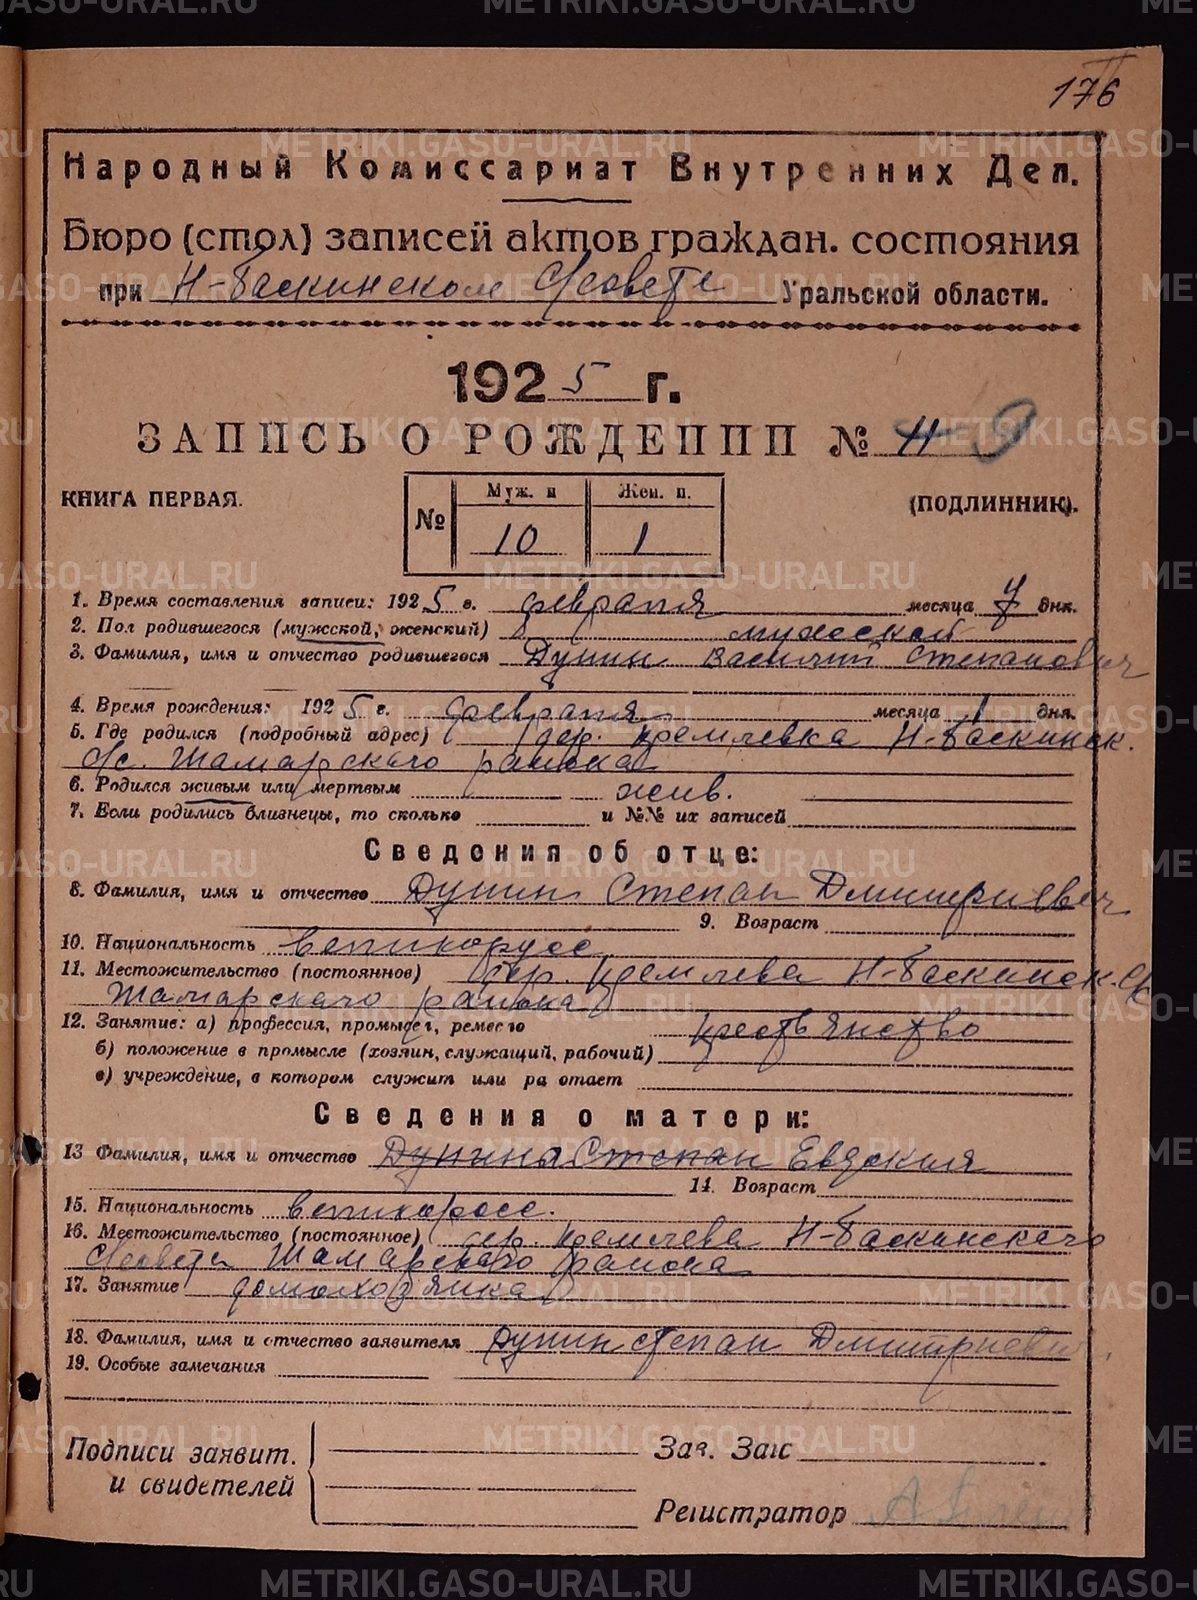 176
Народный Комиссариат Внутренних Дел.
Бюро (стол) записей актов граждан. состояния
при Н-Баскинском С/совете Уральской области.
1925 г.
ЗАПИСЬ О РОЖДЕНИИ № 11 9
КНИГА ПЕРВАЯ.
(ПОДЛИННИК).
№ Муж. п Жен. п.
10 1
1. Время составления записи: 1925 г. февраля месяца 7 дня.
2. Пол родившегося (мужской, женский) мужской
3. Фамилия, имя и отчество родившегося Дунин Василий Степанович
4. Время рождения: 1925 г. февраля месяца 1 дня.
5. Где родился (подробный адрес) дер. Кремлевка Н-Баскинск.
С/с. Шамарского района
6. Родился живым или мертвым жив.
7. Если родились близнецы, то сколько и №№ их записей
Сведения об отце:
8. Фамилия, имя и отчество Дунин Степан Дмитриевич
9. Возраст
10. Национальность великорусс
11. Местожительство (постоянное) дер. Кремлева Н-Баскинск. С/с
Шамарского района
12. Занятие: а) профессия, промысел, ремесло крестьянство
б) положение в промысле (хозяин, служащий, рабочий)
в) учреждение, в котором служит или ра отает
Сведения о матери:
13 Фамилия, имя и отчество Дунина Степан Евдокия
14. Возраст
15. Национальность великоросс.
16. Местожительство (постоянное) дер. Кремлева Н-Баскинского
С/совета Шамарского района
17. Занятие домохозяйка
18. Фамилия, имя и отчество заявителя Дунин Степан Дмитриевич
19. Особые замечания
Подписи заявит.
и свидетелей
Зав. Загс
Регистратор
METRIKI.GASO-URAL.RU